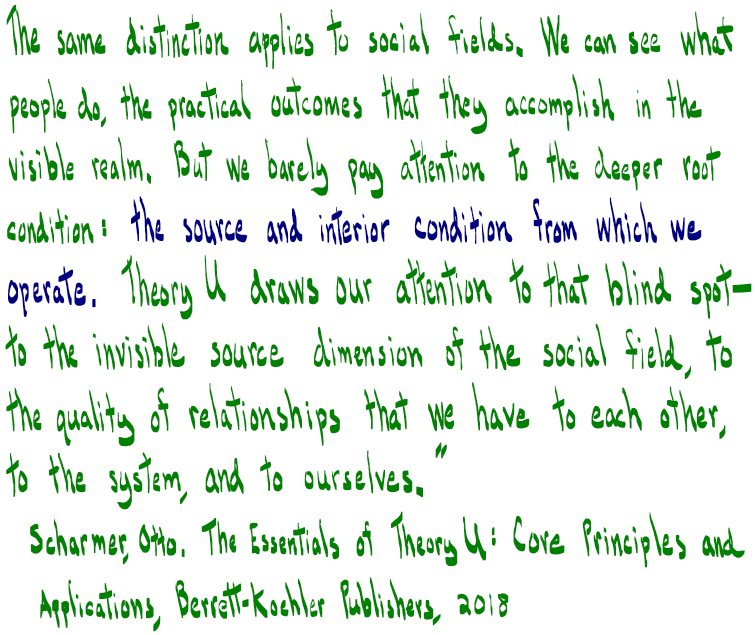 The same distinction applies to social fields. We can see what
people do, the practical outcomes that they accomplish in the
visible realm. But we barely pay attention to the deeper root
condition: the source and interior condition from which we
operate. Theory U draws our attention to that blind spot—
to the invisible source dimension of the social field, to
the quality of relationships that we have to each other,
to the system, and to ourselves."
Scharmer, Otto. The Essentials of Theory U: Core Principles and
Applications, Berrett-Koehler Publishers, 2018